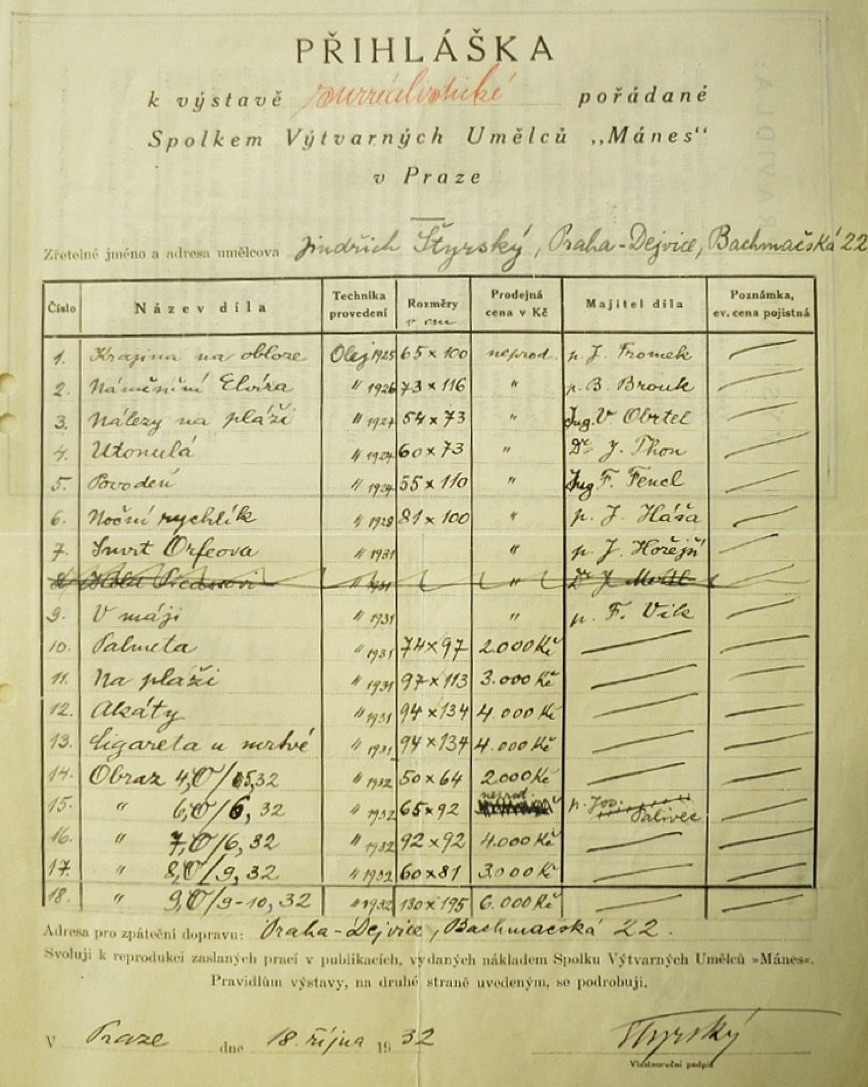 PŘIHLÁŠKA
k výstavě surrealistické pořádané
Spolkem Výtvarných Umělců „Mánes“
v Praze
Zřetelné jméno a adresa umělcova Jindřich Štyrský, Praha-Dejvice, Bachmačská 22
Číslo Název díla Technika provedení Rozměry v cm Prodejná cena v Kč Majitel díla Poznámka, ev. cena pojistná
1. Krajina na obloze Olej 1925 65 × 100 neprod. p. J. Fromek
2. Náměsíční Elvíra " 1926 73 × 116 " p. B. Brouk
3. Nálezy na pláži " 1927 54 × 73 " Ing. V. Obrtel
4. Utonulá " 1927 60 × 73 " Dr J. Thon
5. Povodeň " 1927 55 × 110 " Ing F. Fencl
6. Noční rychlík " 1928 81 × 100 " p. J. Háša
7. Smrt Orfeova " 1931 " p. J. Hořejš
8. " 1931 " Dr J.
9. V máji " 1931 " p. F. Vik
10. Palmeta " 1931 74 × 97 2.000 Kč
11. Na pláži " 1931 97 × 113 3.000 Kč
12. Akáty " 1931 94 × 134 4.000 Kč
13. Cigareta u mrtvé " 1931 94 × 134 4.000 Kč
14. Obraz 4, O/ 5, 32 " 1932 50 × 64 2.000 Kč
15. " 6, O/6, 32 " 1932 65 × 92 neprod. p. Jos. Palivec
16. " 7, O/6, 32 " 1932 92 × 92 4.000 Kč
17. " 8, O/9, 32 " 1932 60 × 81 3.000 Kč
18. " 9, O/9-10, 32 " 1932 130 × 195 6.000 Kč
Adresa pro zpáteční dopravu: Praha-Dejvice, Bachmačská 22.
Svoluji k reprodukci zaslaných prací v publikacích, vydaných nákladem Spolku Výtvarných Umělců »Mánes«.
Pravidlům výstavy, na druhé straně uvedeným, se podrobuji.
V Praze dne 18. října 1932 Štyrský
Vlastnoruční podpis